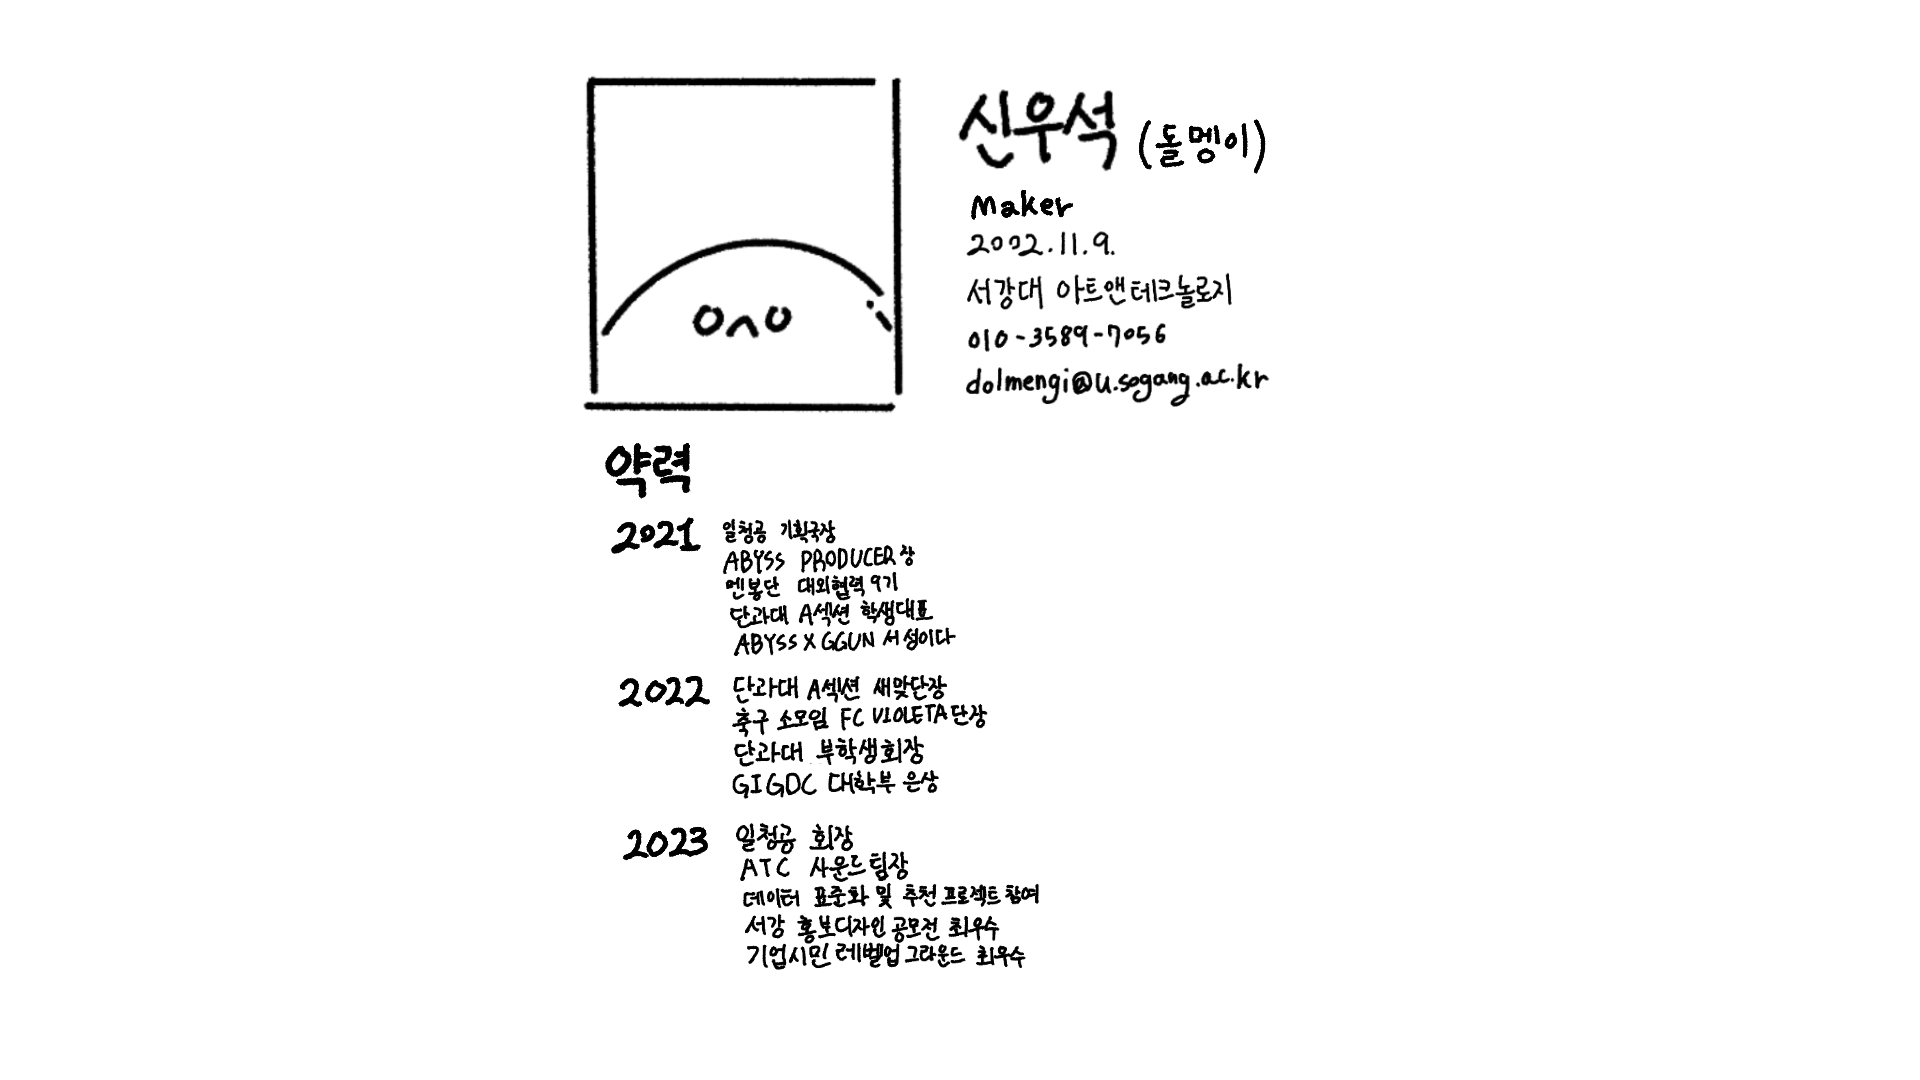 신우석 (돌멩이)
Maker
2002.11.9.
서강대 아트앤테크놀로지
010-3589-7056
dolmengi@u.sogang.ac.kr
약력
2021 일청공 기획국장
ABYSS PRODUCER장
멘봉단 대외협력 9기
단과대 A섹션 학생대표
ABYSS X GGUN 서성이다
2022 단과대 A섹션 새맞단장
축구 소모임 FC VIOLETA 단장
단과대 부학생회장
GIGDC 대학부 은상
2023 일청공 회장
ATC 사운드팀장
데이터 표준화 및 추천 프로젝트 참여
서강 홍보디자인 공모전 최우수
기업시민 레벨업 그라운드 최우수